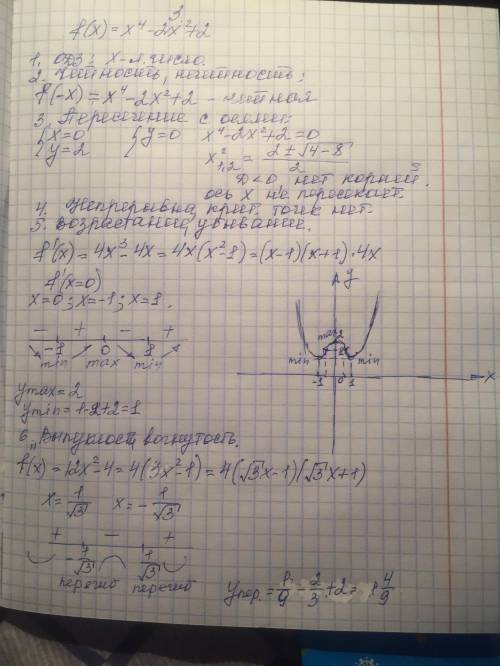 3.
f(x) = x⁴ - 2x² + 2
1. ОДЗ: x - л. число.
2. Чётность, нечётность:
f(-x) = x⁴ - 2x² + 2 - чётная
3. Пересечение с осями:
{x=0 {y=0 x⁴ - 2x² + 2 = 0
{y=2 x²₁,₂ = (2 ± √4-8)/2
D<0 нет корней.
ось X не пересекает.
4. Непрерывна, крит. точек нет.
5. Возрастание, убывание.
f'(x) = 4x³ - 4x = 4x(x²-1) = (x-1)(x+1)·4x
f'(x=0)
x=0; x=-1; x=1.
- + - +
-1 0 1
min max min
y max = 2
y min = 1-2+2=1
y
max 2
min min
-1 0 1 x
6. Выпуклость, вогнутость.
f(x) = 12x²-4 = 4(3x²-1) = 4(√3x-1)(√3x+1)
x = 1/√3 x = -1/√3
+ - +
-1/√3 1/√3
перегиб перегиб
y пер. = 1/9 - 2/3 + 2 = 1 4/9